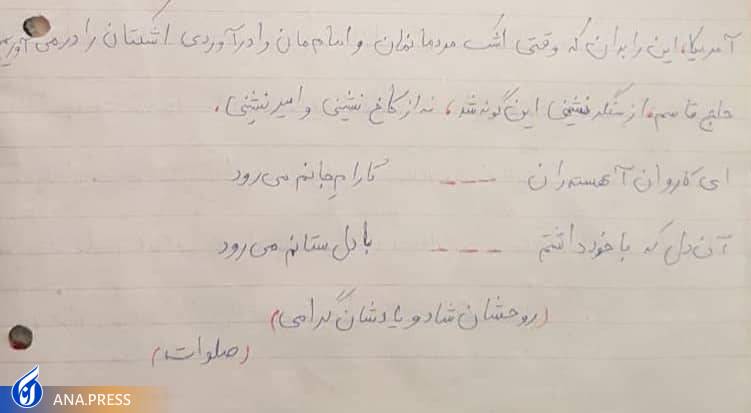 آمریکا، این را بدان که وقتی اشک مردمانمان و امام مان را درآوردی اشکتان را درمی آوریم
حاج قاسم، از سنگر نشینی این گونه شد، نه از کاخ نشینی و امیر نشینی.
ای کاروان آهسته ران --- کارام جانم می رود
آن دل که با خود داشتم --- با دل ستانم می رود
(روحشان شاد و یادشان گرامی)
(صلوات)
ANA.PRESS